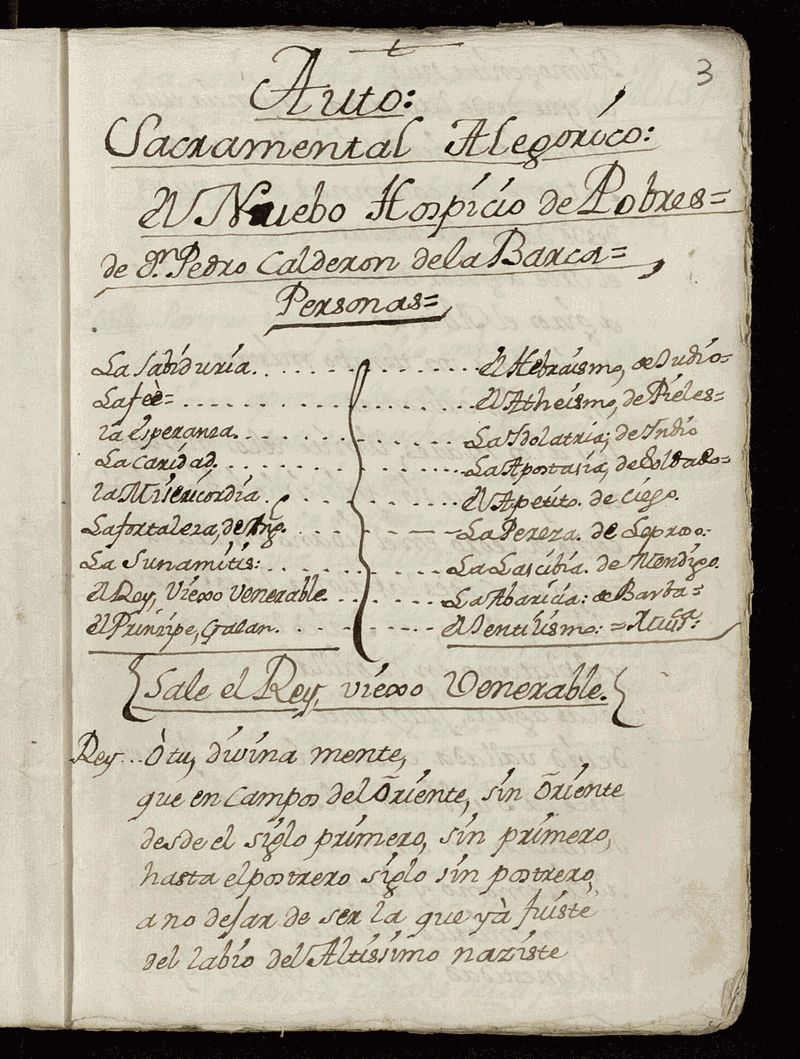 3
Auto:
Sacramental Alegorico:
el Nuebo Hospicio de Pobres=
de Dn. Pedro Calderon de la Barca=
Personas=
La Sabiduria. . . . . . . . . . . . el Hebraismo, de Judio=
La feè= . . . . . . . . . . . . . . el Atheismo, de Pieles=
la esperanza. . . . . . . . . . . . La Idolatria; de Indio
La Caridad. . . . . . . . . . . . . La Apostasia, de Soldado=
la Misericordia . . . . . . . . . . el Apetito. de ciego.
La fortaleza, de Angl. . . . . . . . La Pereza. de Leproso.
La Sunamitis: . . . . . . . . . . . La Lascibia. de Mendigo.
el Rey, Viexo Venerable. . . . . . . La Abaricia: de Barba=
el Principe, Galan. . . . . . . . . el Gentilismo: = Musca:
Sale el Rey, viexo Venerable.
Rey... Ò tu, divina mente,
que en campos del Oriente, sin Oriente
desde el siglo primero, sin primero,
hasta el postrero siglo sin postrero,
a no dejar de ser la que yà fuiste
del labio del Altissimo naziste